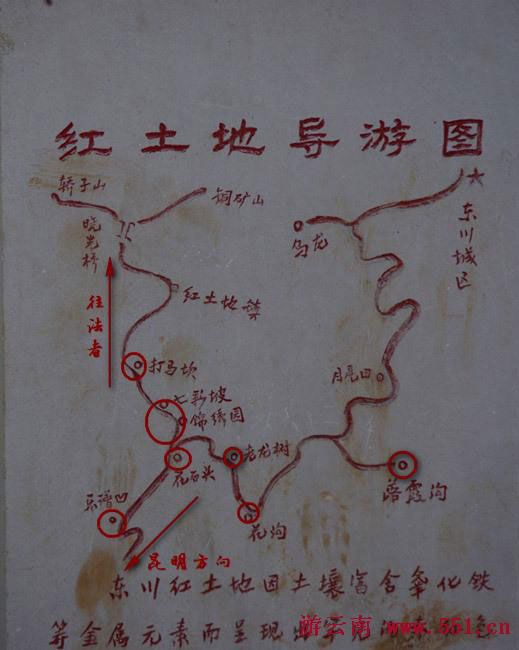 红土地导游图
轿子山
铜矿山
晓光桥
乌龙
东川城区
红土地镇
往法者
打马坎
月亮田
七彩坡
锦绣园
老龙树
花石头
落霞沟
乐谱凹
花沟
昆明方向
东川红土地因土壤富含氧化铁
等金属元素而呈现出
游云南 www.551.cn